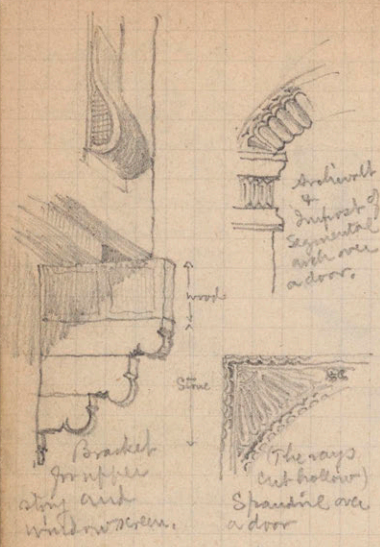 Archivolt
&
Impost of
Segmental
arch over
a door.
wood
Stone
Bracket
for upper
story and
window screen.
(The rays
cut hollow)
Spandril over
a door
&c